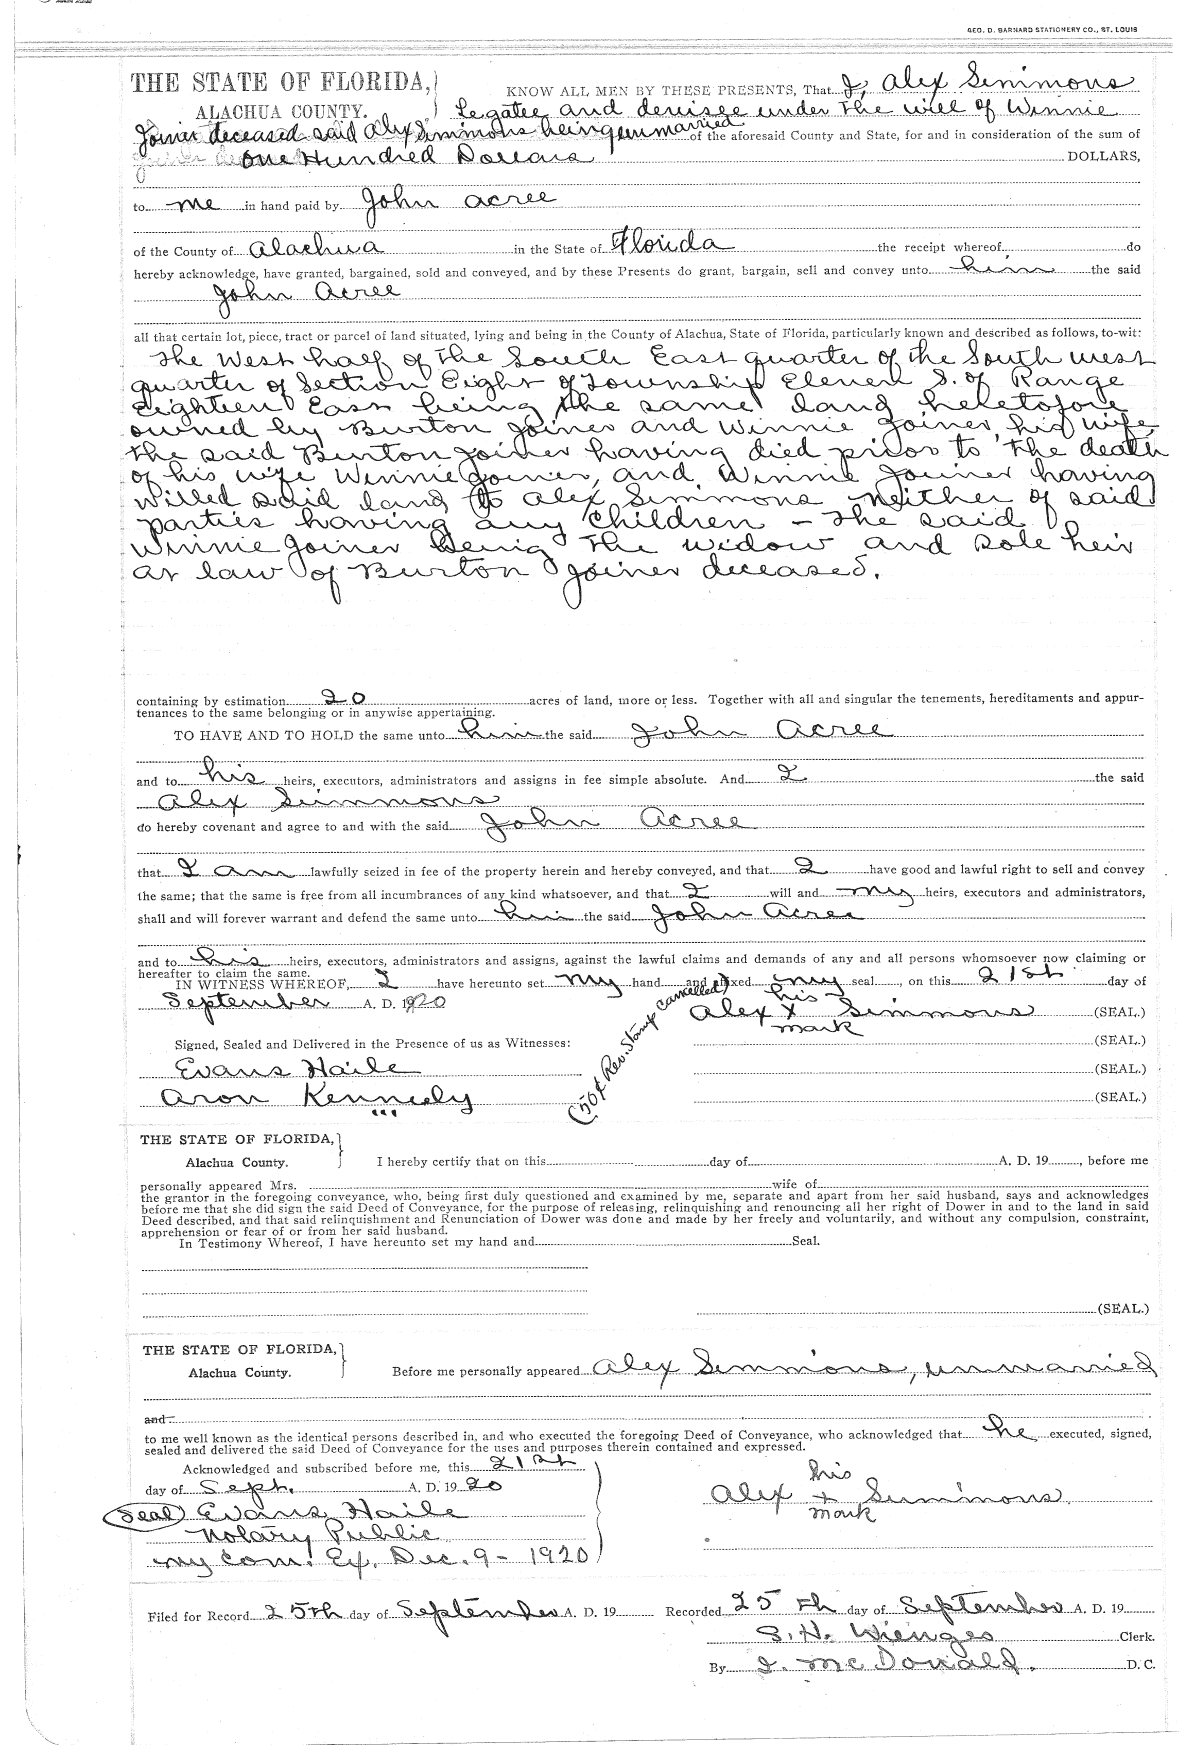 GEO. D. BARNARD STATIONERY CO., ST. LOUIS
THE STATE OF FLORIDA,} KNOW ALL MEN BY THESE PRESENTS, That I, Alex Simmons
ALACHUA COUNTY. Legatee and devisee under the will of Winnie
Joiner deceased said Alex Simmons being unmarried of the aforesaid County and State, for and in consideration of the sum of
One Hundred Dollars DOLLARS,
to me in hand paid by John Acree
of the County of Alachua in the State of Florida the receipt whereof do
hereby acknowledge, have granted, bargained, sold and conveyed, and by these Presents do grant, bargain, sell and convey unto him the said
John Acree
all that certain lot, piece, tract or parcel of land situated, lying and being in the County of Alachua, State of Florida, particularly known and described as follows, to-wit:
The West half of the South East quarter of the South west
quarter of Section Eight of Township Eleven S. of Range
Eighteen East being the same land heletofore
owned by Burton Joiner and Winnie Joiner, his wife,
the said Burton Joiner having died prior to the death
of his wife Winnie Joiner, and Winnie Joiner having
willed said land to Alex Simmons neither of said
parties having any children - The said
Winnie Joiner being the widow and sole heir
at law of Burton Joiner deceased.
containing by estimation 20 acres of land, more or less. Together with all and singular the tenements, hereditaments and appur-
tenances to the same belonging or in anywise appertaining.
TO HAVE AND TO HOLD the same unto him the said John Acree
and to his heirs, executors, administrators and assigns in fee simple absolute. And I the said
Alex Simmons
do hereby covenant and agree to and with the said John Acree
that I am lawfully seized in fee of the property herein and hereby conveyed, and that I have good and lawful right to sell and convey
the same; that the same is free from all incumbrances of any kind whatsoever, and that I will and my heirs, executors and administrators,
shall and will forever warrant and defend the same unto him the said John Acree
and to his heirs, executors, administrators and assigns, against the lawful claims and demands of any and all persons whomsoever now claiming or
hereafter to claim the same.
IN WITNESS WHEREOF, I have hereunto set my hand and affixed my seal, on this 21st day of
September A. D. 1920
(50¢ Rev. Stamp cancelled)
his
Alex X Simmons (SEAL.)
mark
Signed, Sealed and Delivered in the Presence of us as Witnesses: (SEAL.)
Evans Haile (SEAL.)
Aron Kennedy (SEAL.)
THE STATE OF FLORIDA,}
Alachua County. I hereby certify that on this day of A. D. 19, before me
personally appeared Mrs. wife of
the grantor in the foregoing conveyance, who, being first duly questioned and examined by me, separate and apart from her said husband, says and acknowledges
before me that she did sign the said Deed of Conveyance, for the purpose of releasing, relinquishing and renouncing all her right of Dower in and to the land in said
Deed described, and that said relinquishment and Renunciation of Dower was done and made by her freely and voluntarily, and without any compulsion, constraint,
apprehension or fear of or from her said husband.
In Testimony Whereof, I have hereunto set my hand and Seal.
(SEAL.)
THE STATE OF FLORIDA,}
Alachua County. Before me personally appeared Alex Simmons, unmarried
and
to me well known as the identical persons described in, and who executed the foregoing Deed of Conveyance, who acknowledged that he executed, signed,
sealed and delivered the said Deed of Conveyance for the uses and purposes therein contained and expressed.
Acknowledged and subscribed before me, this 21st
day of Sept. A. D. 1920
his
Alex + Simmons
mark
Seal Evans Haile
Notary Public
my com. Ex. Dec. 9 - 1920
Filed for Record 25th day of September A. D. 19 Recorded 25th day of September A. D. 19
S. H. Wienges Clerk.
By I. McDonald. D. C.